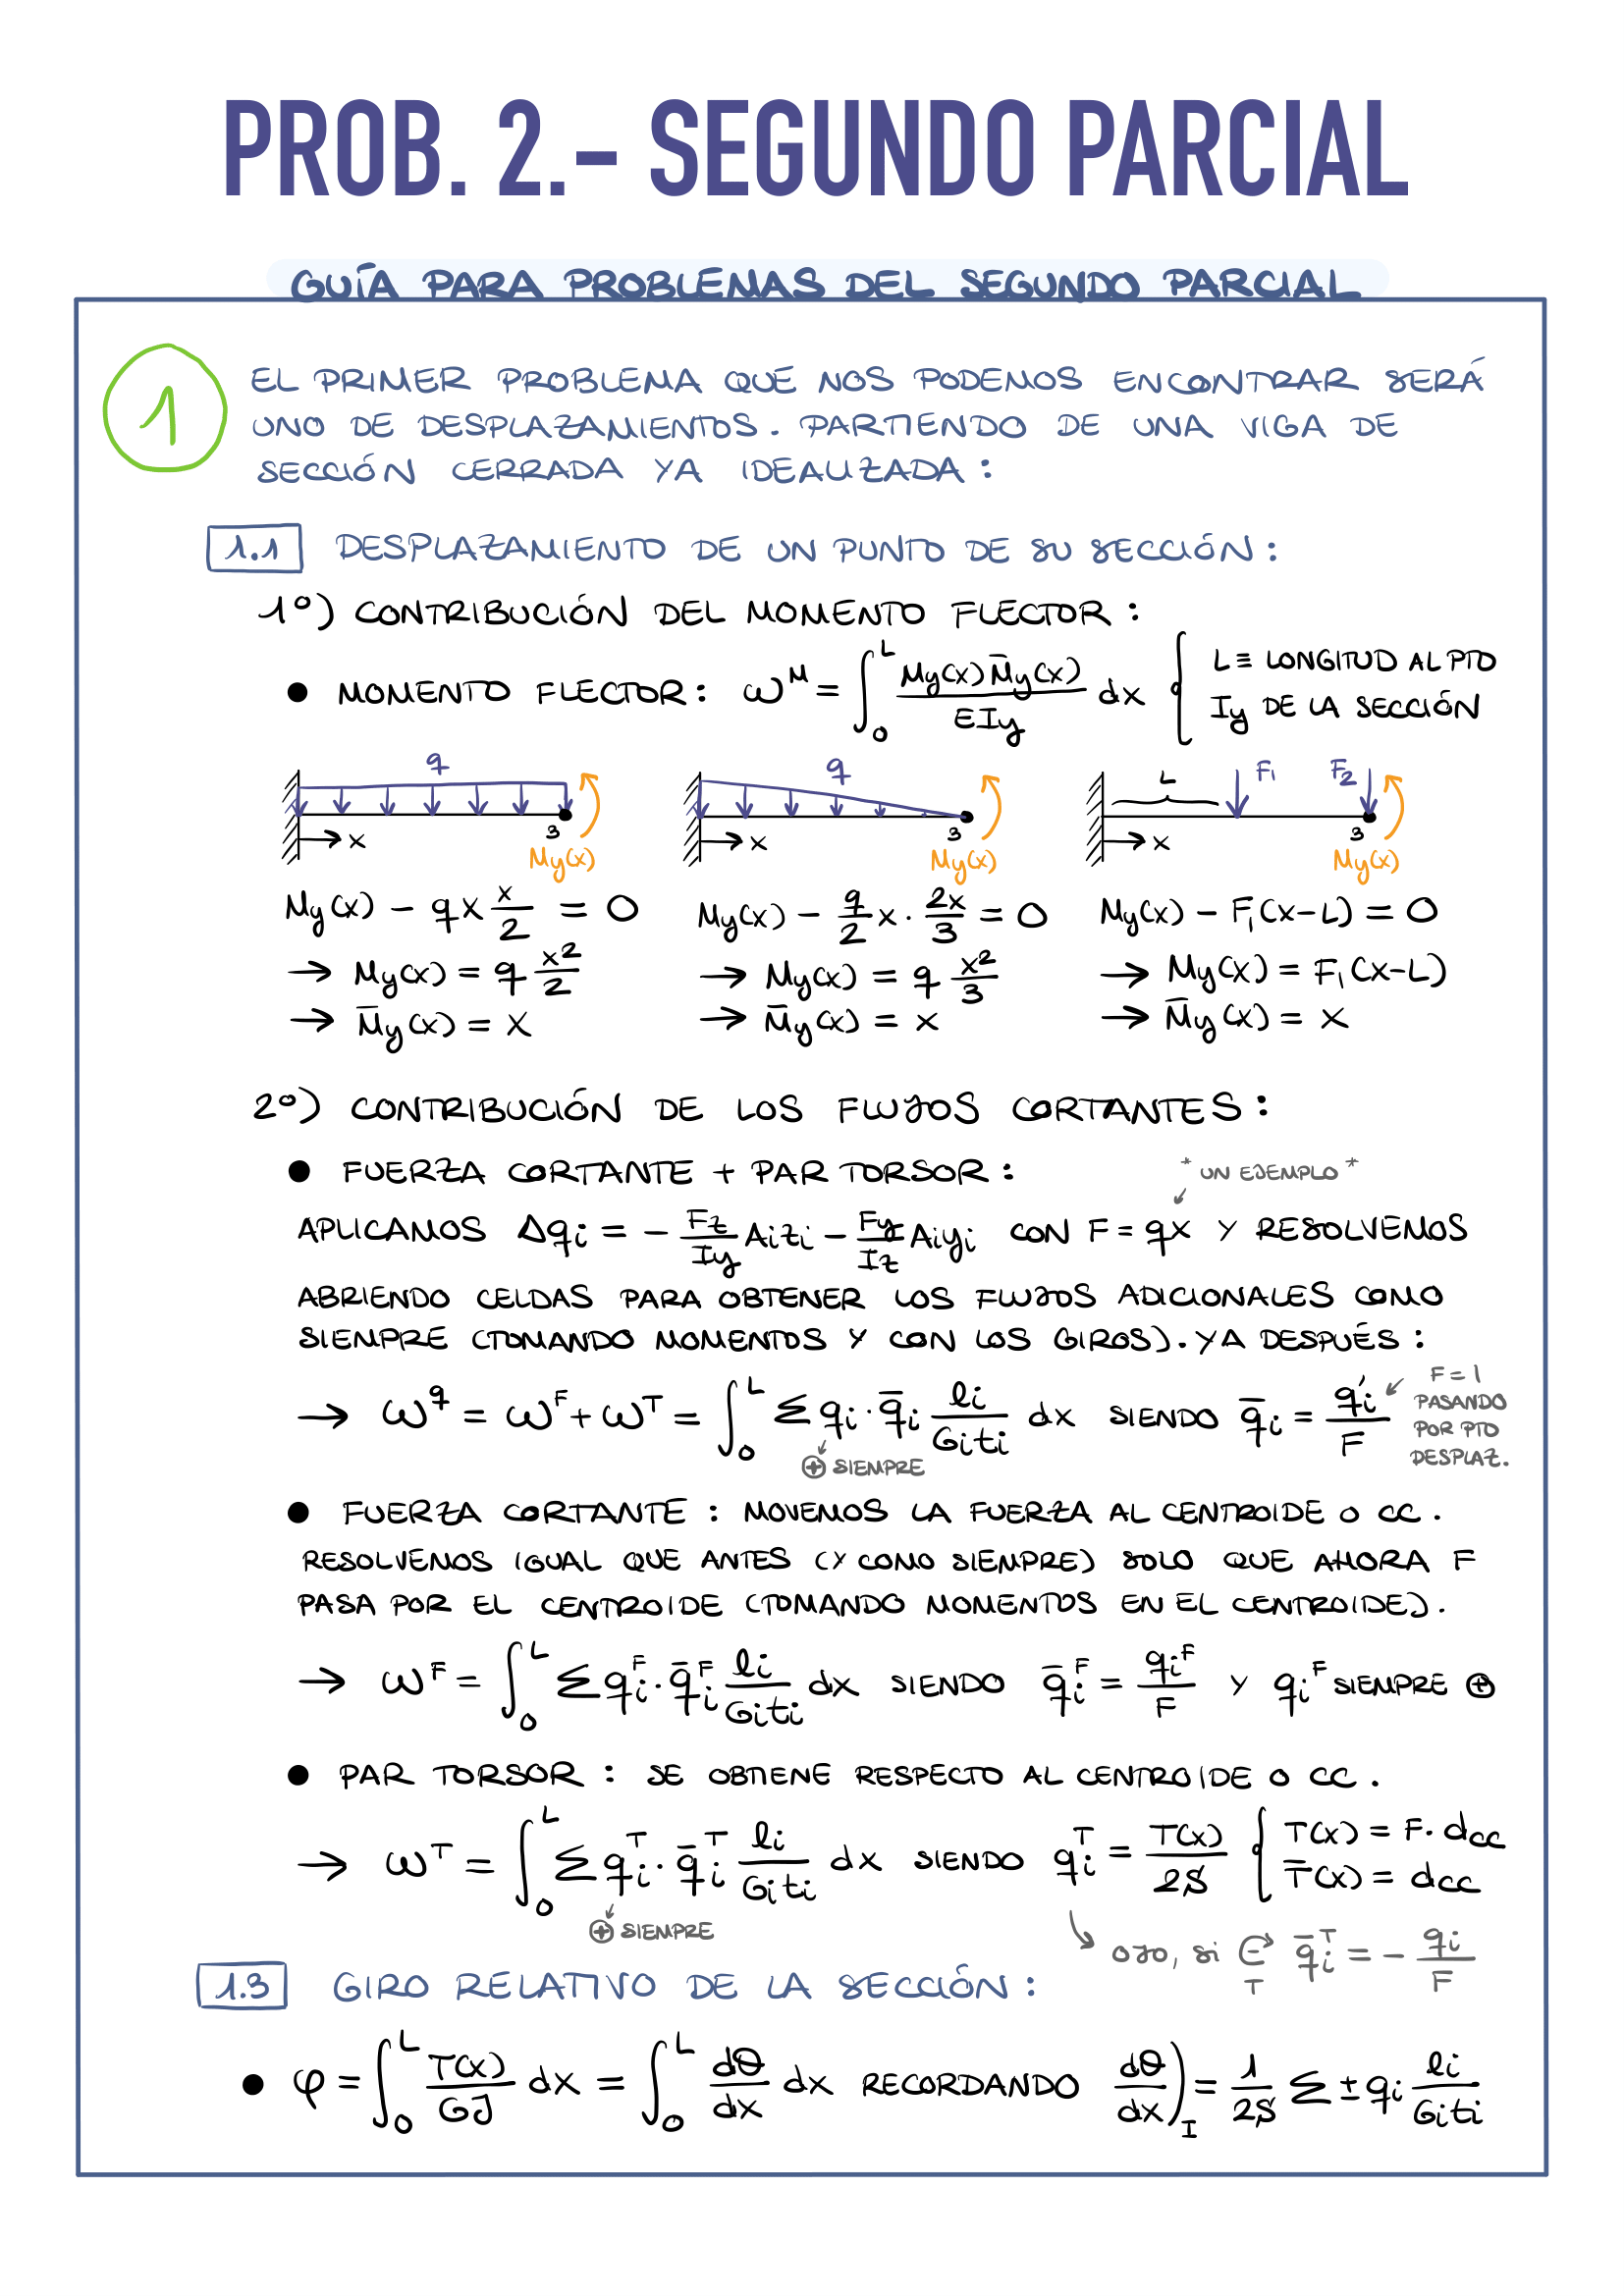 PROB. 2.- SEGUNDO PARCIAL
GUÍA PARA PROBLEMAS DEL SEGUNDO PARCIAL
1 EL PRIMER PROBLEMA QUE NOS PODEMOS ENCONTRAR SERÁ
UNO DE DESPLAZAMIENTOS. PARTIENDO DE UNA VIGA DE
SECCIÓN CERRADA YA IDEALIZADA:
1.1 DESPLAZAMIENTO DE UN PUNTO DE SU SECCIÓN:
1º) CONTRIBUCIÓN DEL MOMENTO FLECTOR:
● MOMENTO FLECTOR: ω^M = ∫_0^L My(x) M̄y(x) / EIy dx { L ≡ LONGITUD AL PTO
Iy DE LA SECCIÓN
q q L F1 F2
x 3 x 3 x 3
My(x) My(x) My(x)
My(x) - qx x/2 = 0 My(x) - q/2 x · 2x/3 = 0 My(x) - F1(x-L) = 0
→ My(x) = q x²/2 → My(x) = q x²/3 → My(x) = F1(x-L)
→ M̄y(x) = x → M̄y(x) = x → M̄y(x) = x
2º) CONTRIBUCIÓN DE LOS FLUJOS CORTANTES:
● FUERZA CORTANTE + PAR TORSOR: * UN EJEMPLO *
APLICAMOS Δqi = - Fz/Iy Aizi - Fy/Iz Aiyi CON F = qx Y RESOLVEMOS
ABRIENDO CELDAS PARA OBTENER LOS FLUJOS ADICIONALES COMO
SIEMPRE (TOMANDO MOMENTOS Y CON LOS GIROS). YA DESPUÉS:
→ ω^q = ω^F + ω^T = ∫_0^L Σ qi · q̄i li/Giti dx SIENDO q̄i = q'i/F ↙ F = 1 PASANDO POR PTO DESPLAZ.
⊕ SIEMPRE
● FUERZA CORTANTE: MOVEMOS LA FUERZA AL CENTROIDE O CC.
RESOLVEMOS IGUAL QUE ANTES (Y COMO SIEMPRE) SOLO QUE AHORA F
PASA POR EL CENTROIDE (TOMANDO MOMENTOS EN EL CENTROIDE).
→ ω^F = ∫_0^L Σ qi^F · q̄i^F li/Giti dx SIENDO q̄i^F = qi^F/F Y qi^F SIEMPRE ⊕
● PAR TORSOR: SE OBTIENE RESPECTO AL CENTROIDE O CC.
→ ω^T = ∫_0^L Σ qi^T · q̄i^T li/Giti dx SIENDO qi^T = T(x)/2S { T(x) = F · dcc
T̄(x) = dcc
⊕ SIEMPRE
OJO, si - T q̄i^T = - qi/F
1.3 GIRO RELATIVO DE LA SECCIÓN:
● φ = ∫_0^L T(x)/GJ dx = ∫_0^L dθ/dx dx RECORDANDO dθ/dx)_I = 1/2S Σ ± qi li/Giti